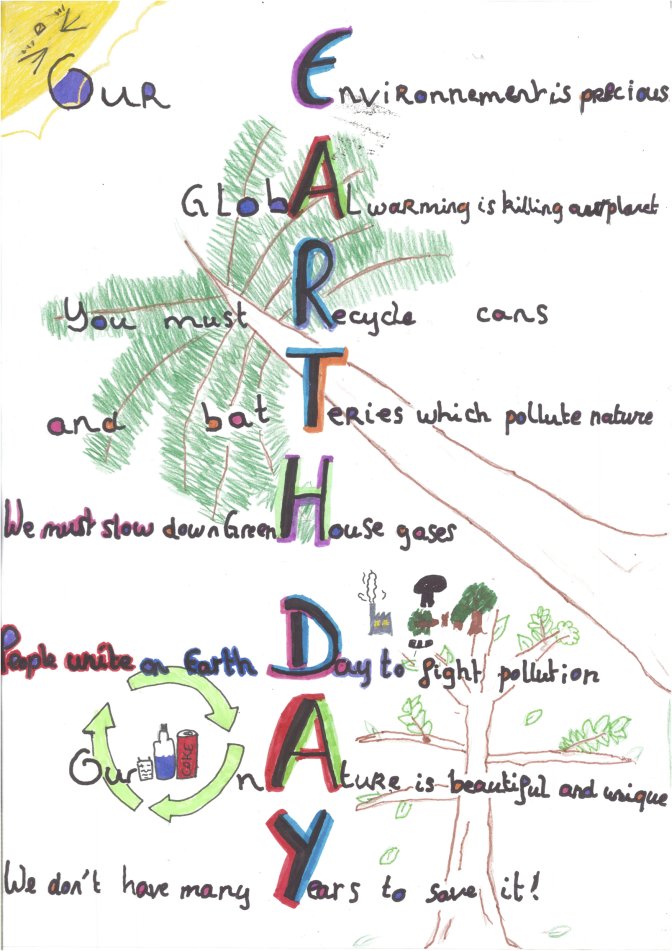 OUR Environnement is precious
Global warming is killing our planet
You must Recycle cans
and batteries which pollute nature
We must slow down GreenHouse gases
People unite on Earth Day to fight pollution
COKE
Our nAture is beautiful and unique
We don't have many Years to save it!